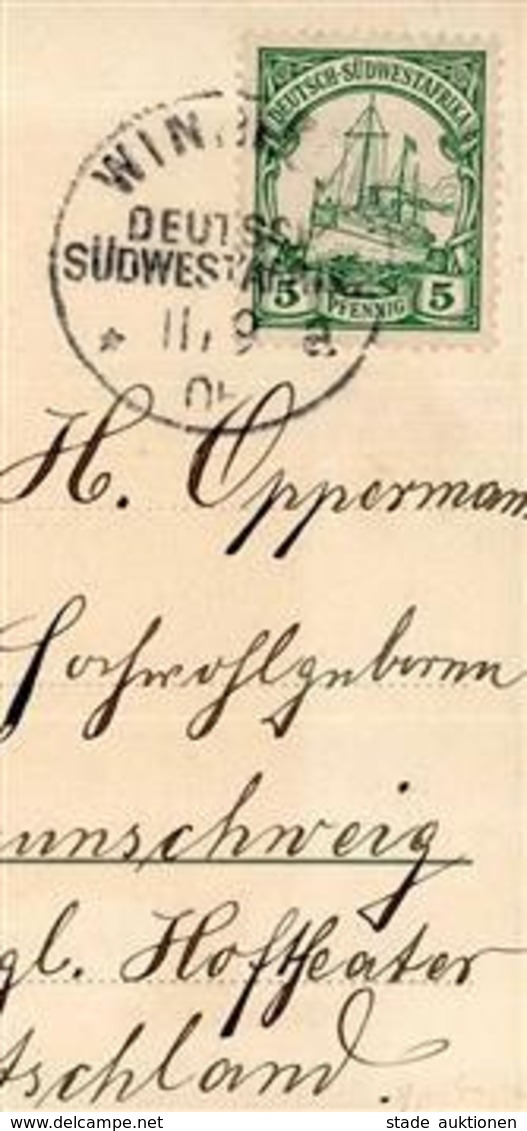 DEUTSCH-SÜDWESTAFRIKA
5 PFENNIG 5
DEUTSCH
SÜDWESTAFRIKA
11/9 a.
H. Oppermann
Hochwohlgeboren
unschweig
gl. Hoftheater
tschland.
www.delcampe.net stade auktionen